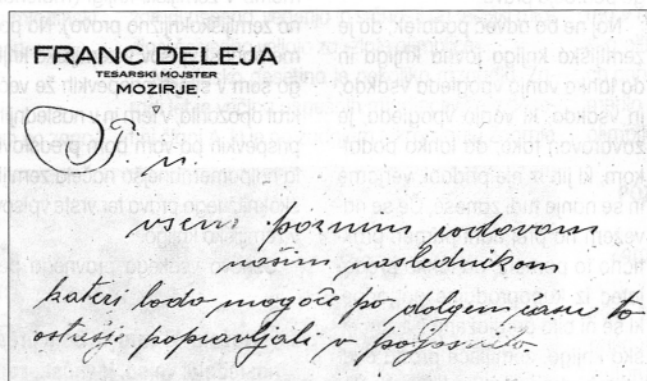 FRANC DELEJA
TESARSKI MOJSTER
MOZIRJE
vsem poznim rodovom
našim naslednikom
kateri bodo mogoče po dolgem času to
ostrešje popravljale v